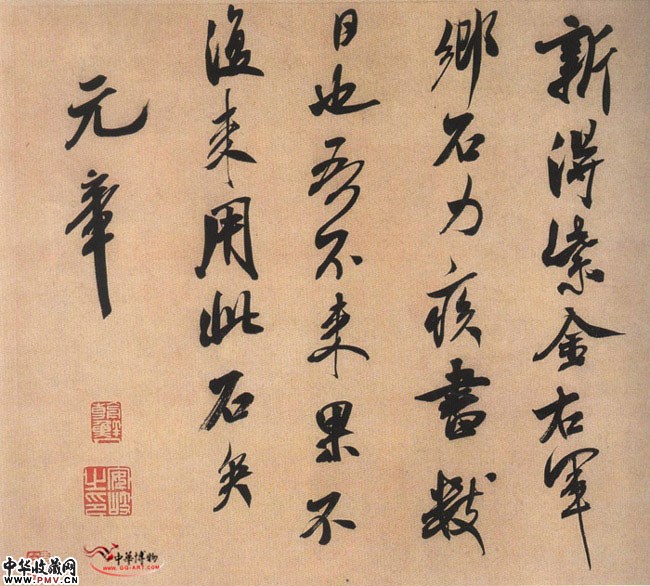 新得紫金右軍
鄉石力疾書數
日也吾不来果不
復来用此石矣
元章
中華博物
www.GG-ART.com
中华收藏网
www.PMV.CN